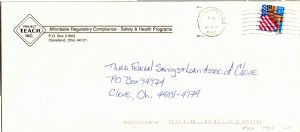 PROJECT
TEACH, INC.
Affordable Regulatory Compliance - Safety & Health Programs
P.O. Box 21863
Cleveland, Ohio 44121
PM
1997
Third Federal Savings & Loan Assoc. of Cleve.
PO Box 94974
Cleve., Oh. 44101-4974